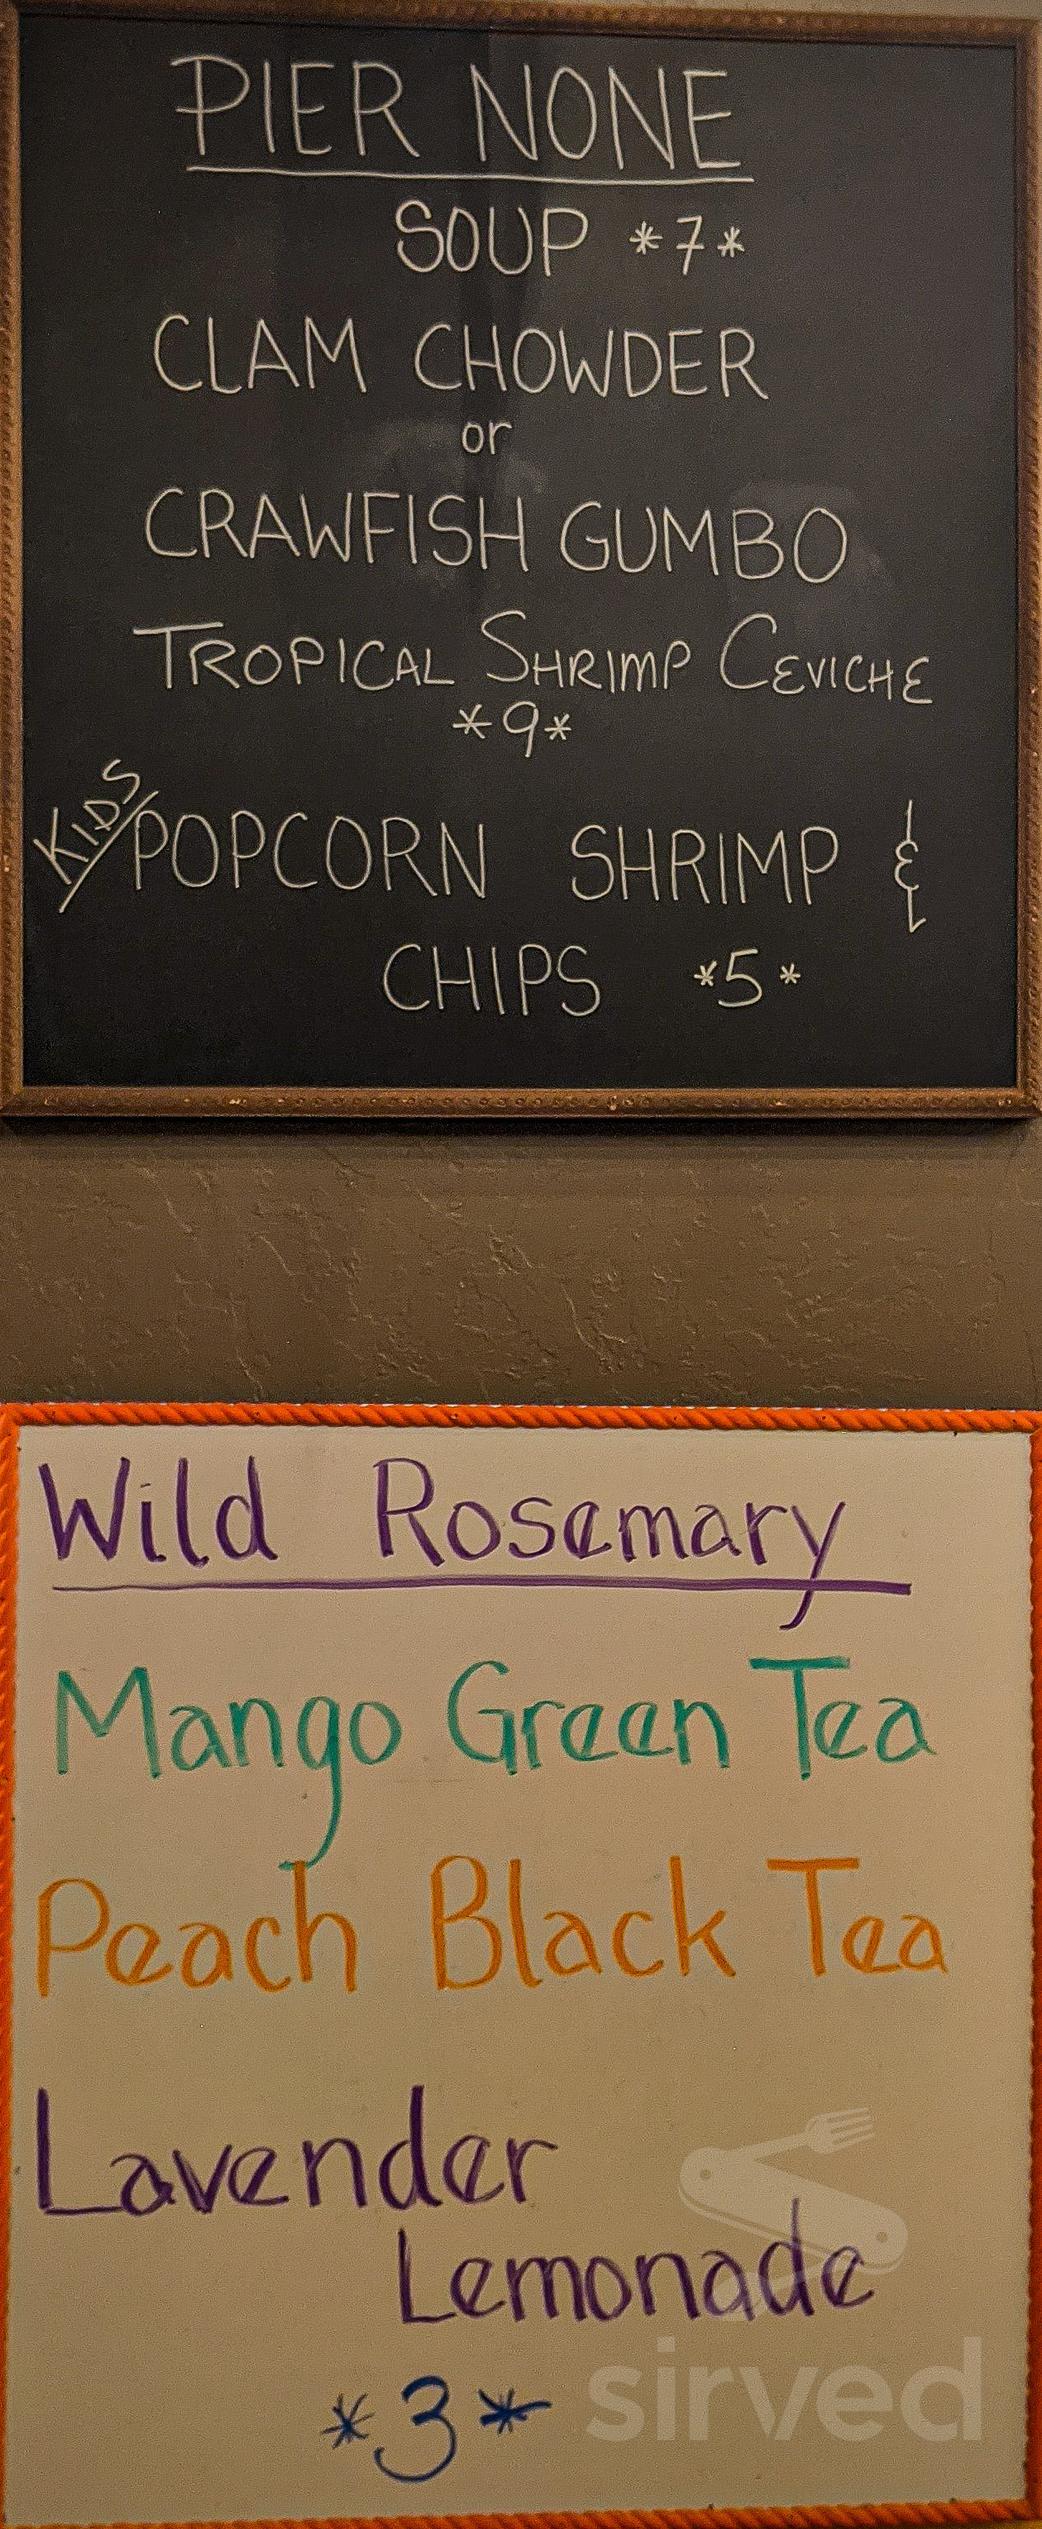 PIER NONE
SOUP *7*
CLAM CHOWDER
or
CRAWFISH GUMBO
TROPICAL SHRIMP CEVICHE
*9*
KIDS POPCORN SHRIMP &
CHIPS *5*
Wild Rosemary
Mango Green Tea
Peach Black Tea
Lavender
Lemonade
*3*
sirved